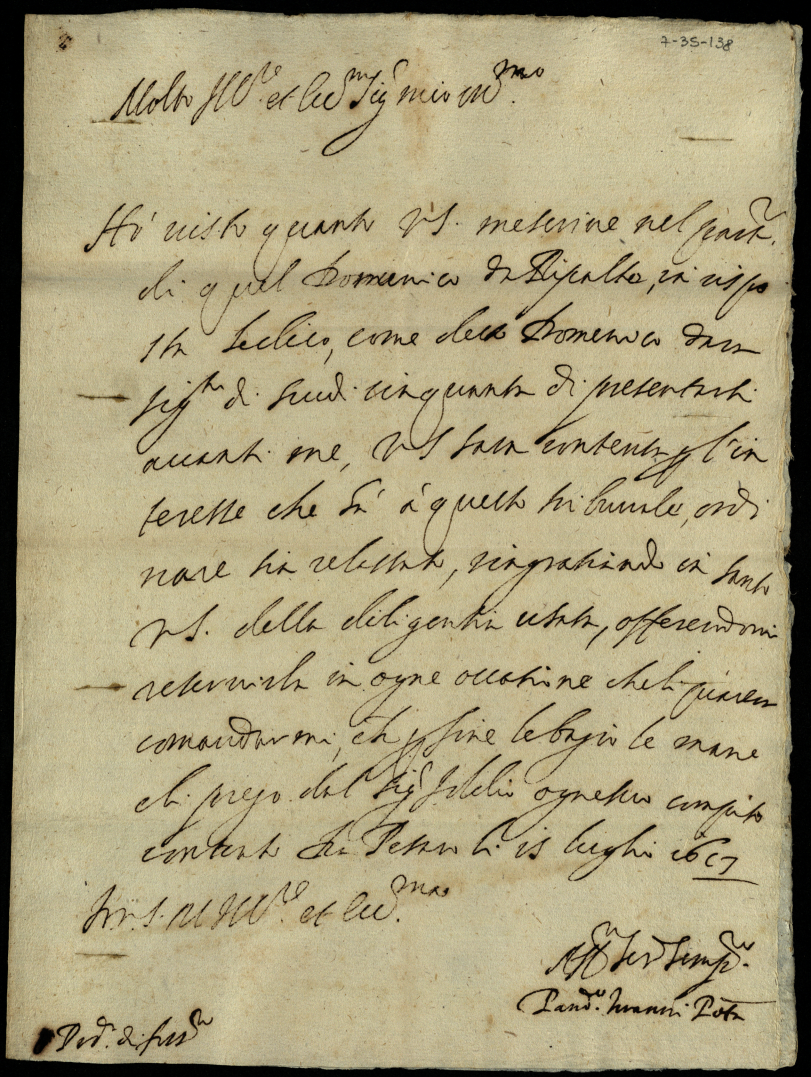 7-35-138
Molto Ill.re et Ecc.mo Sig.r mio oss.mo
Hò visto quanto V.S. mescrive nel part.re
di quel Domenico da Ripalta, in rispo
sta le dico, come detto Domenico dara
sig.tà di scudi cinquanta di presentarsi
avanti me, V S sara contenta p l'in
teresse che hà à questo tribunale, ordi
nare sia relassato, ringratiando in tanto
V S. della diligentia usata, offerendomi
reservirla in ogne occatione che li piacera
comandarmi, et p fine le bagio le mane
e li prego dal Sig.r Iddio ogne suo compito
contento Da Pesaro li 15 luglio 1617
Di V.S. M Ill.re et Ecc.ma
Aff.mo Ser.re Semp.re
Pand.o
Pod.à di